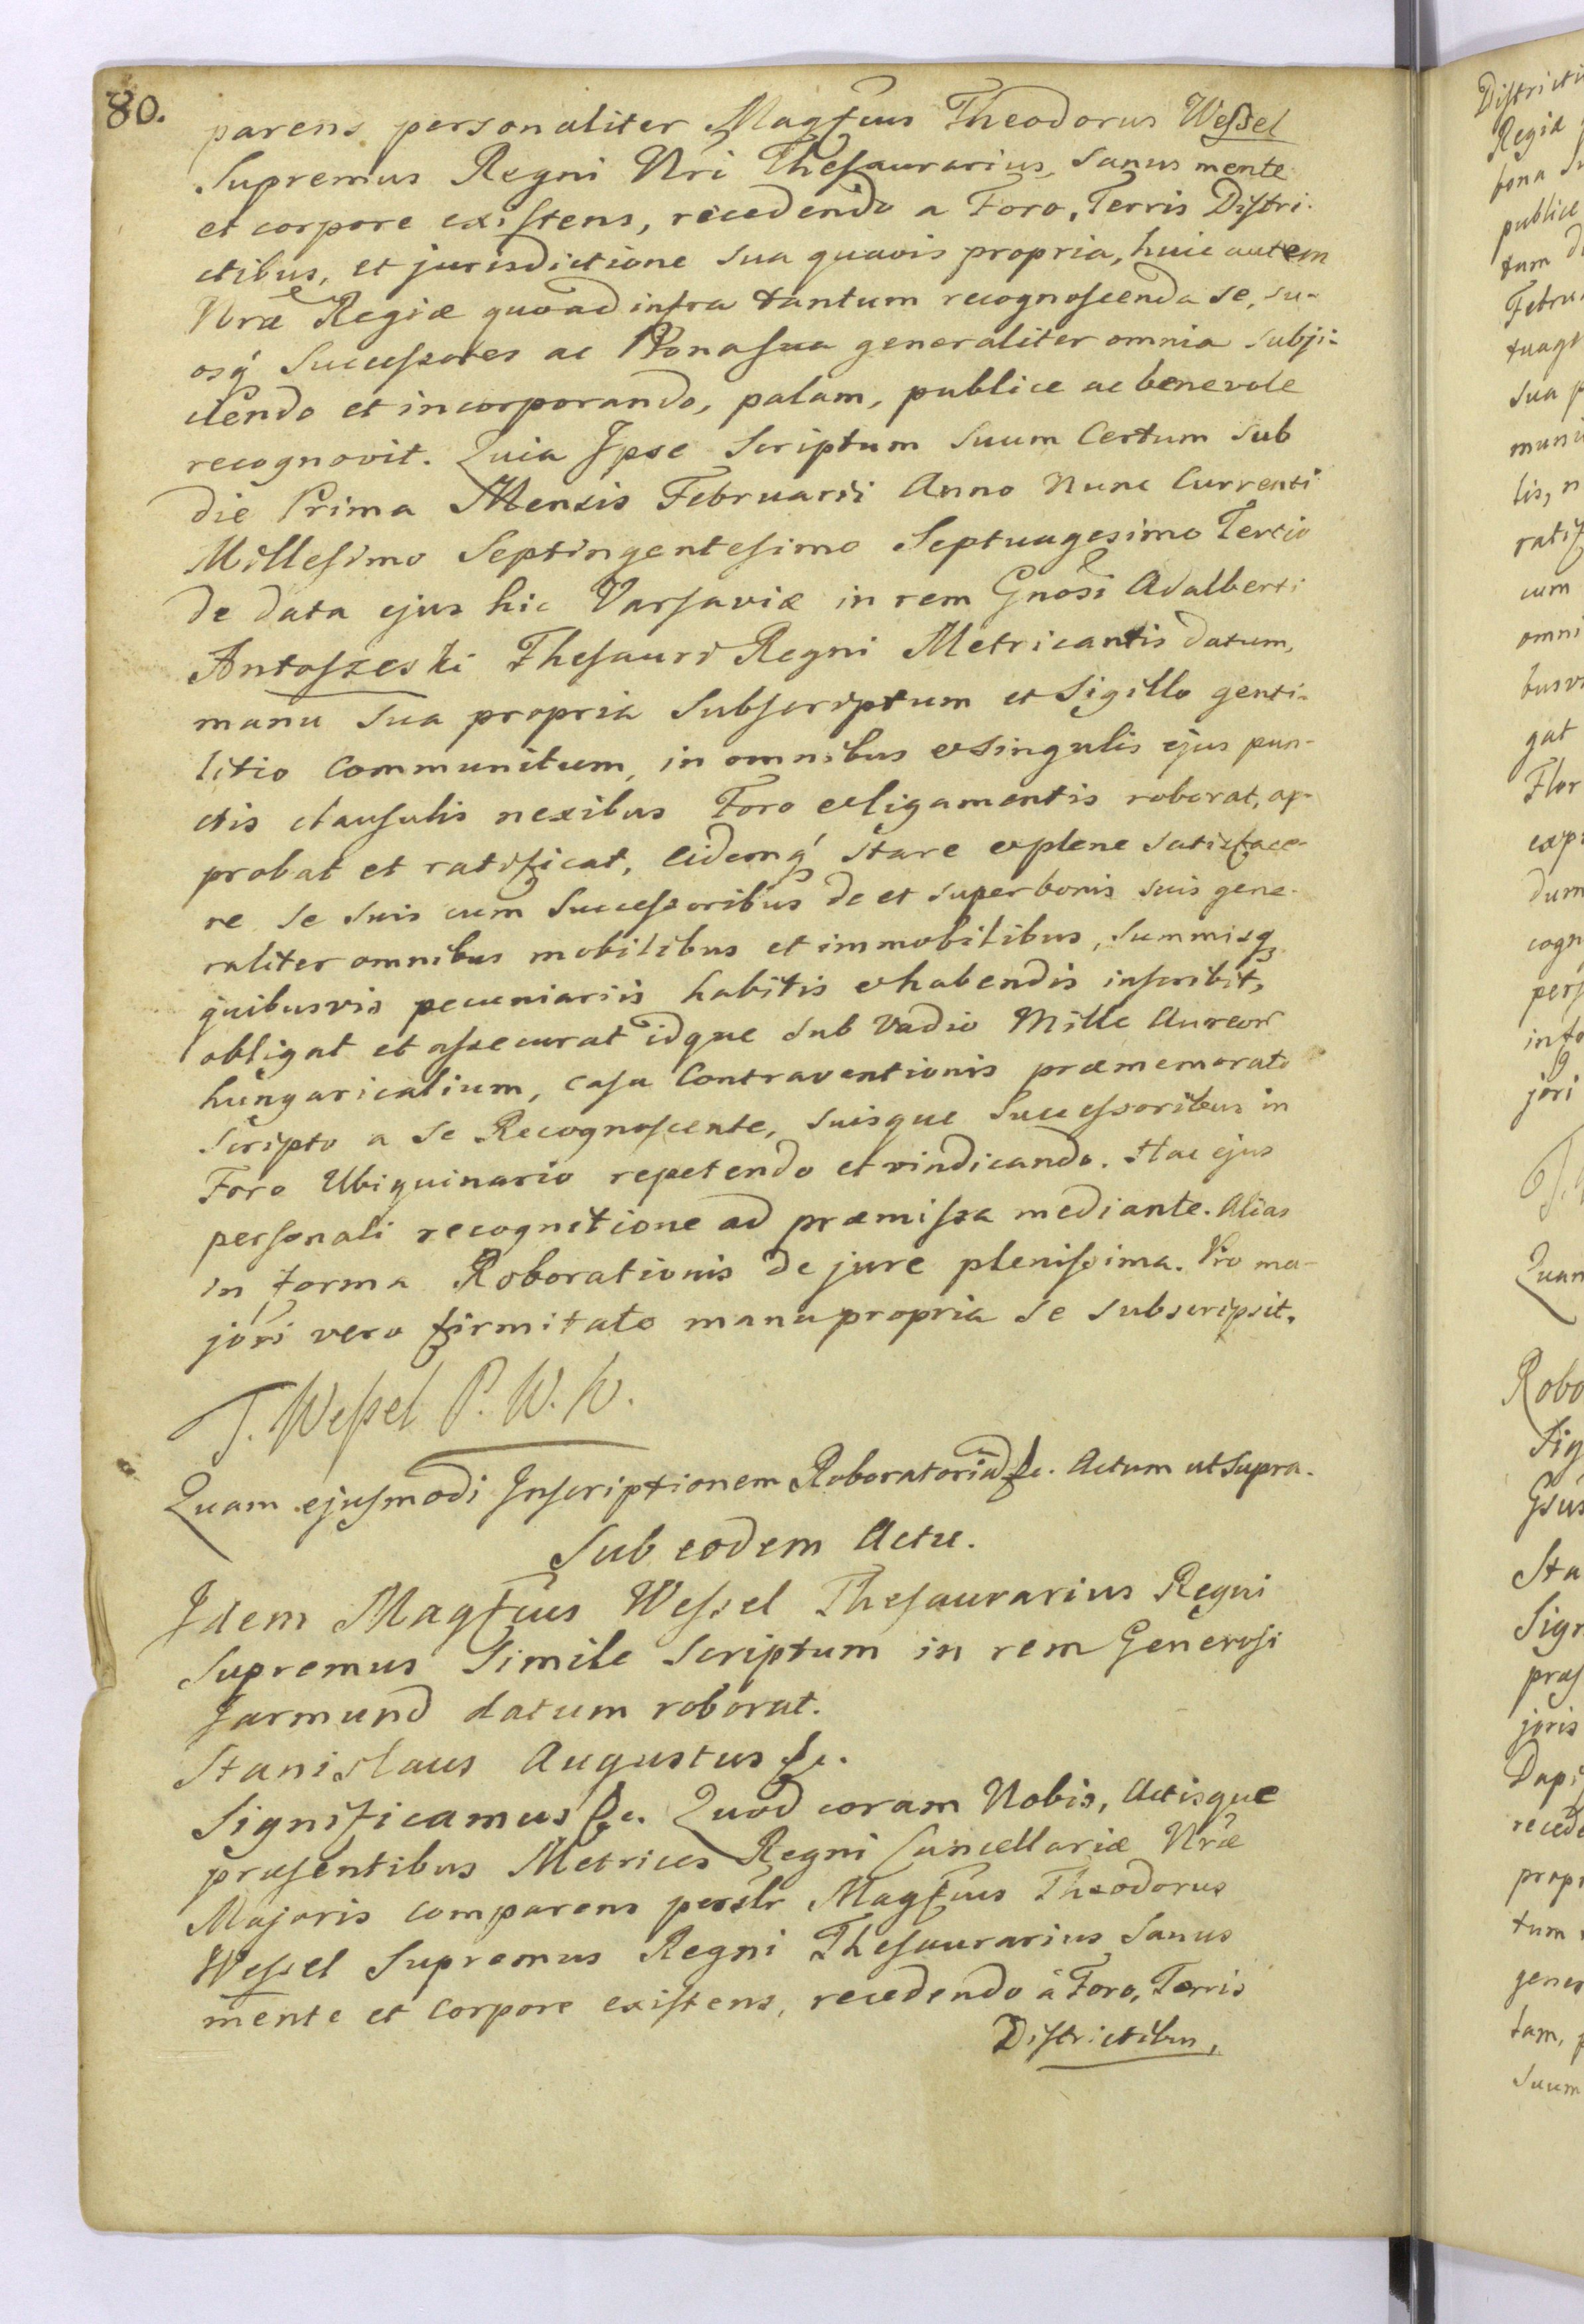 80.
parens personaliter Magfcus Theodorus Wessel
Supremus Regni Nri Thesaurarius, Sanus mente
et corpore existens, recedendo a Foro, Terris Distri-
ctibus, et jurisdictione sua quavis propria, huic autem
Nræ Regiæ quoad infra tantum recognoscenda se, su-
osq́ Successores ac Bona sua generaliter omnia subji-
ciendo et incorporando, palam, publice ac benevole
recognovit. Quia Ipse Scriptum Suum Certum sub
die Prima Mensis Februarii Anno Nunc Currenti
Millesimo Septingentesimo Septuagesimo Tertio
de data ejus hic Varsaviæ in rem Gnosi Adalberti
Antoszeski Thesauri Regni Metricantis datum,
manu sua propria Subscriptum et Sigillo genti-
litio Communitum, in omnibus et Singulis ejus pun-
ctis clausulis nexibus Foro et ligamentis roborat, ap-
probat et ratificat, Eidemq́ Stare et plene satisface-
re se suis cum Successoribus de et super bonis suis gene-
raliter omnibus mobilibus et immobilibus, Summisq́
quibusvis pecuniariis habitis et habendis inscribit,
obligat et assecurat idque Sub Vadio Mille Aureor
hungaricalium, casu Contraventionis præmemorato
Scripto a se Recognoscente, Suisque Successoribus in
Foro Ubiquinario repetendo et vindicando. Hac ejus
personali recognitione ad præmissa mediante. Alias
in forma Roborationis de jure plenissima. Pro ma-
jori vero firmitate manu propria se subscripsit.
T. Wessel P. W. K.
Quam ejusmodi Inscriptionem Roboratoriã &c. Actum ut supra.
Sub eodem Actu.
Idem Magfcus Wessel Thesaurarius Regni
Supremus Simile Scriptum in rem Generosi
Jarmund datum roborat.
Stanislaus Augustus &c.
Significamus &c. Quod coram Nobis, Actisque
præsentibus Metrices Regni Cancellariæ Nræ
Majoris comparens perslr Magfcus Theodorus
Wessel Supremus Regni Thesaurarius Sanus
mente et Corpore existens, recedendo à Foro, Terris
Districtibus,
Regiæ
bona
publice
tum
sua
lis,
cum
gat
dum
jori
Quam
Sta
joris
tum
tam,
Suum